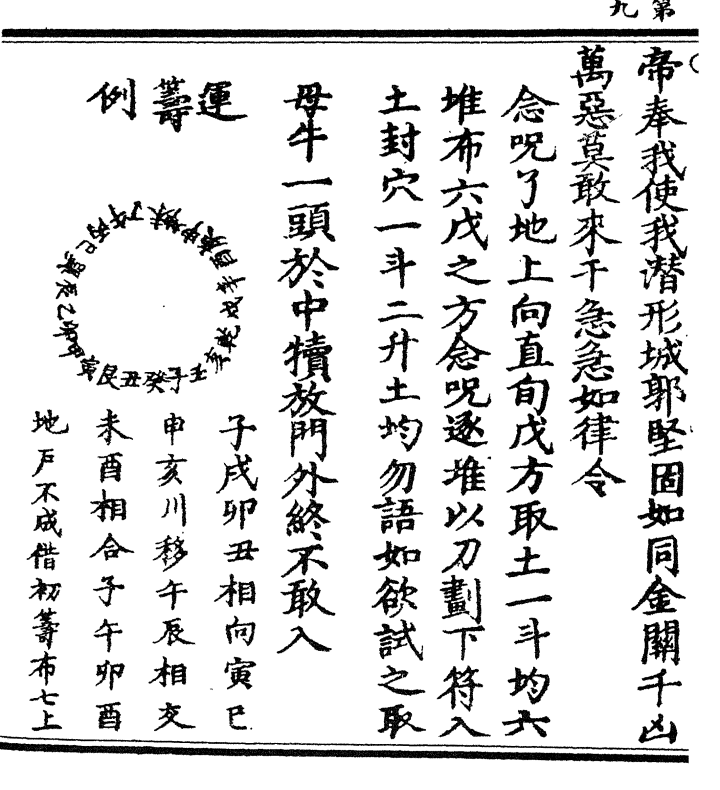 第九
帝奉我使我潜形城郭堅固如同金關千凶
萬惡莫敢來干急急如律令
念呪了地上向直旬戊方取土一斗均六
堆布六戊之方念呪逐堆以刀劃下符入
土封穴一斗二升土均勿語如欲試之取
母牛一頭於中犢放門外終不敢入
運籌例
壬子癸丑艮寅甲卯乙辰巽巳丙午丁未坤申庚酉辛戌乾亥
子戌卯丑相向寅巳
申亥川移午辰相交
未酉相合子午卯酉
地戶不成借初籌布七上